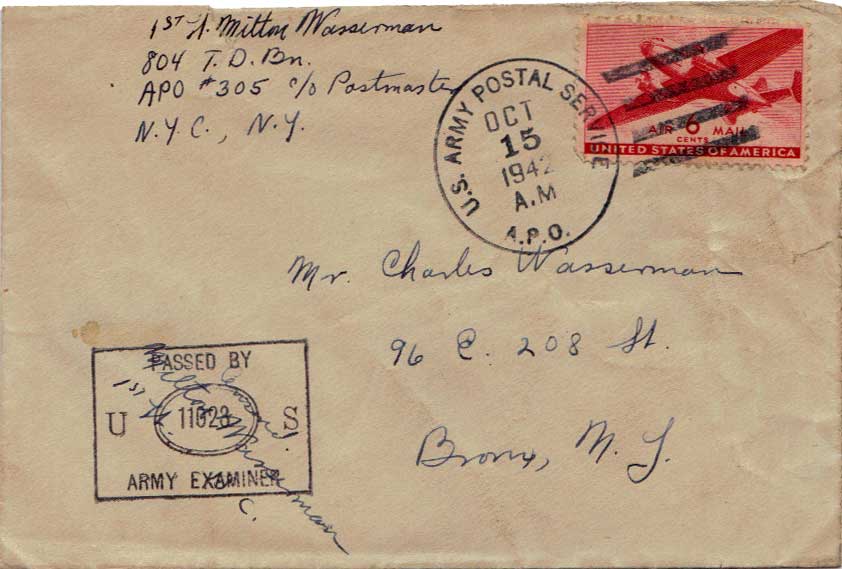 1st Lt. Milton Wasserman
804 T. D. Bn.
APO #305 c/o Postmaster
N.Y.C., N.Y.
U.S. ARMY POSTAL SERVICE
OCT
15
1942
A.M
A.P.O.
AIR 6 MAIL
CENTS
UNITED STATES OF AMERICA
Mr. Charles Wasserman
96 E. 208 St.
Bronx, N. Y.
PASSED BY
U 11023 S
ARMY EXAMINER
Censored
Milton Wasserman
1st Lt